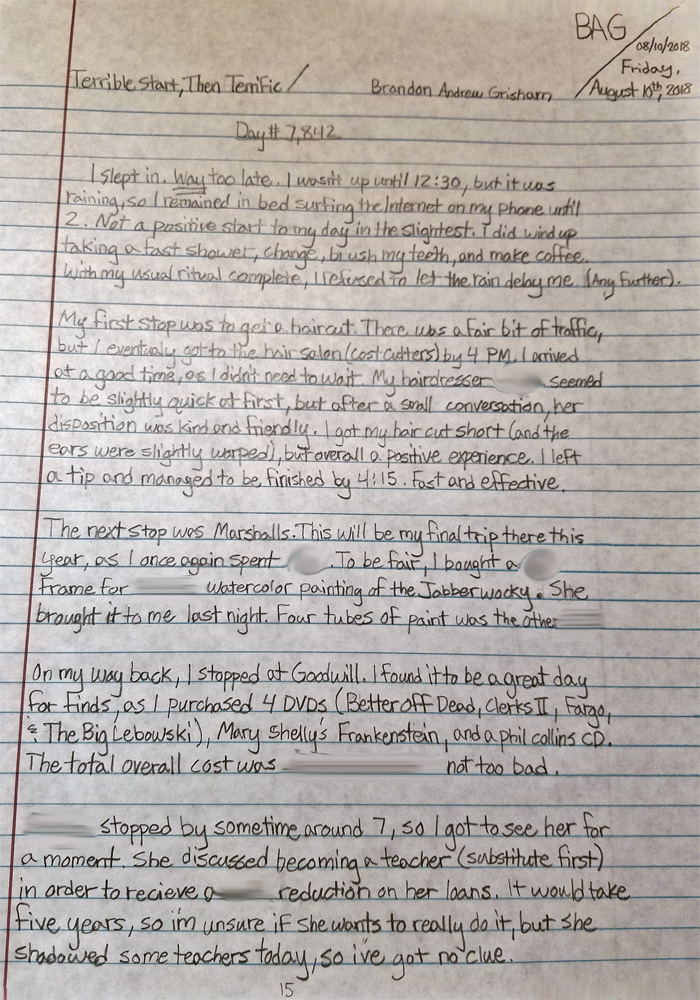 BAG
08/10/2018
Friday,
Terrible Start, Then Terrific / Brandon Andrew Grisham / August 10th, 2018
Day# 7,842
I slept in. Way too late. I wasn't up until 12:30, but it was
raining, so I remained in bed surfing the Internet on my phone until
2. Not a positive start to my day in the slightest. I did wind up
taking a fast shower, change, brush my teeth, and make coffee.
With my usual ritual complete, I refused to let the rain delay me (Any Further).
My first stop was to get a haircut. There was a fair bit of traffic,
but I eventualy got to the hair salon (cost cutters) by 4 PM. I arrived
at a good time, as I didn't need to wait. My hairdresser seemed
to be slightly quick at first, but after a small conversation, her
disposition was kind and friendly. I got my hair cut short (and the
ears were slightly warped), but overall a positive experience. I left
a tip and managed to be finished by 4:15. Fast and effective.
The next stop was Marshalls. This will be my final trip there this
year, as I once again spent . To be fair, I bought a
frame for watercolor painting of the Jabberwocky. She
brought it to me last night. Four tubes of paint was the other
On my way back, I stopped at Goodwill. I found it to be a great day
for finds, as I purchased 4 DVDs (Better off Dead, Clerks II, Fargo,
& The Big Lebowski), Mary Shelly's Frankenstein, and a phil collins CD.
The total overall cost was not too bad.
stopped by sometime around 7, so I got to see her for
a moment. She discussed becoming a teacher (substitute first)
in order to recieve a reduction on her loans. It would take
five years, so im unsure if she wants to really do it, but she
shadowed some teachers today, so i've got no clue.
15